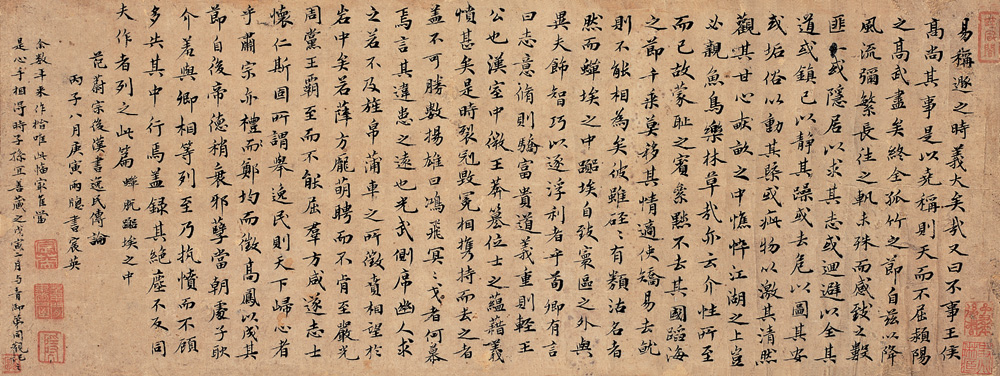 易稱遯之時義大矣哉又曰不事王侯
高尚其事是以堯稱則天而不屈潁陽
之高武盡矣終全孤竹之節自兹以降
風流彌繁長往之軌未殊而感致之數
匪一或隱居以求其志或迴避以全其
道或鎮己以靜其躁或去危以圖其安
或垢俗以動其槩或疵物以激其清然
觀其甘心畎畝之中憔悴江湖之上豈
必親魚鳥樂林草哉亦云介性所至
而已故蒙恥之賓屢黜不去其國蹈海
之節千乘莫移其情適使矯易去就
則不能相為矣彼雖硜〻有類沽名者
然而蟬埃之中埃自致寰區之外與
異夫飾智巧以逐浮利者乎荀卿有言
曰志意脩則驕富貴道義重則輕王
公也漢室中微王莽篡位士之蘊藉義
憤甚矣是時裂冠毀冕相攜持而去之者
蓋不可勝數揚雄曰鴻飛冥〻弋者何慕
焉言其違患之遠也光武側席幽人求
之若不及旌帛蒲車之所徵賁相望於
岩中矣若薛方龐萌聘而不肯至嚴光
周黨王霸至而不能屈羣方咸遂志士
懷仁斯固所謂舉逸民則天下歸心者
乎肅宗亦禮鄭均而徵高鳳以成其
節自後帝德稍衰邪孽當朝處子耿
介羞與卿相等列至乃抗憤而不顧
多失其中行焉蓋錄其絕塵不反同
夫作者列之此篇 蟬蛻埃之中
范蔚宗後漢書逸民傳論
丙子八月庚寅雨牕書宸英
余數年來作楷唯此幅最佳當
是心手相得時子孫宜善藏之戊寅二月与青御第同觀記之